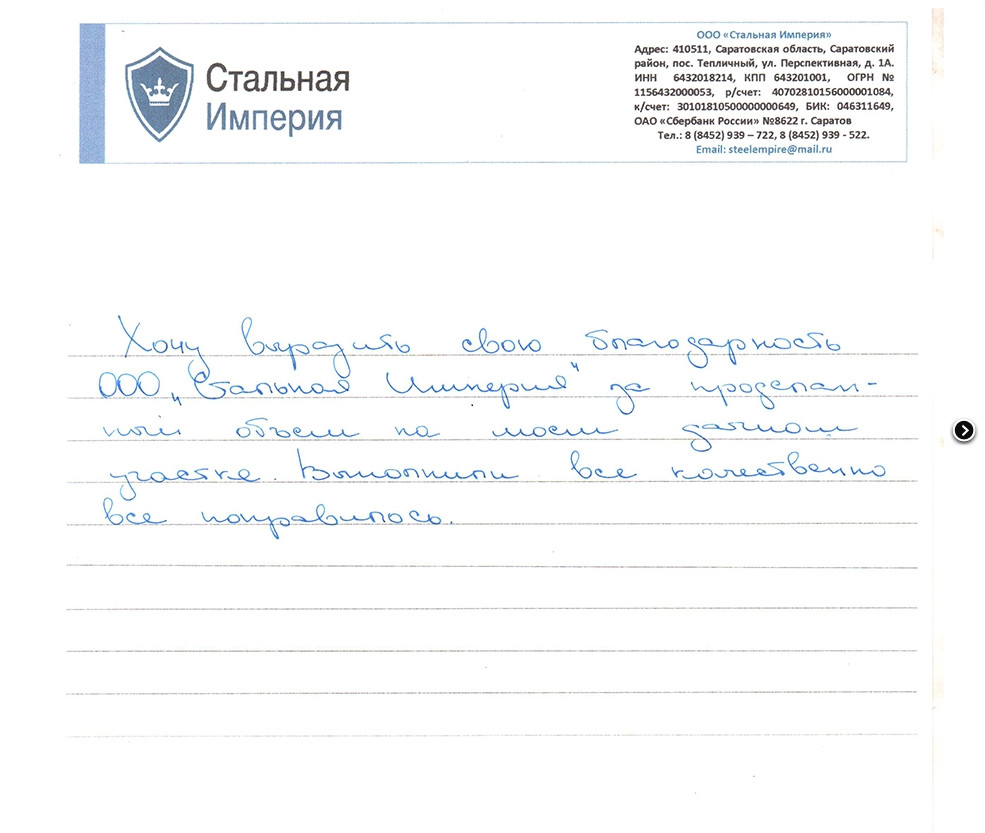 Стальная
Империя
ООО «Стальная Империя»
Адрес: 410511, Саратовская область, Саратовский
район, пос. Тепличный, ул. Перспективная, д. 1А.
ИНН 6432018214, КПП 643201001, ОГРН №
1156432000053, р/счет: 40702810156000001084,
к/счет: 30101810500000000649, БИК: 046311649,
ОАО «Сбербанк России» №8622 г. Саратов
Тел.: 8 (8452) 939 – 722, 8 (8452) 939 - 522.
Email: steelempire@mail.ru
Хочу выразить свою благодарность
ООО „Стальная Империя" за проделан-
ный объем на моем дачном
участке. Выполнили все качественно
все понравилось.